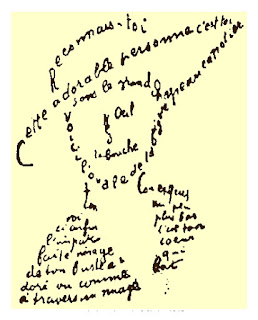 Reconnais-toi
Cette adorable personne c'est toi
Sous le grand chapeau canotier
Œil
Nez
la bouche
Voici l'ovale de ta figure
ton
Cou exquis
Voi
ci enfin
l'impar
faite image
de ton buste a
doré vu comme
à travers un nuage
un peu
plus bas
c'est ton
coeur
qui
bat